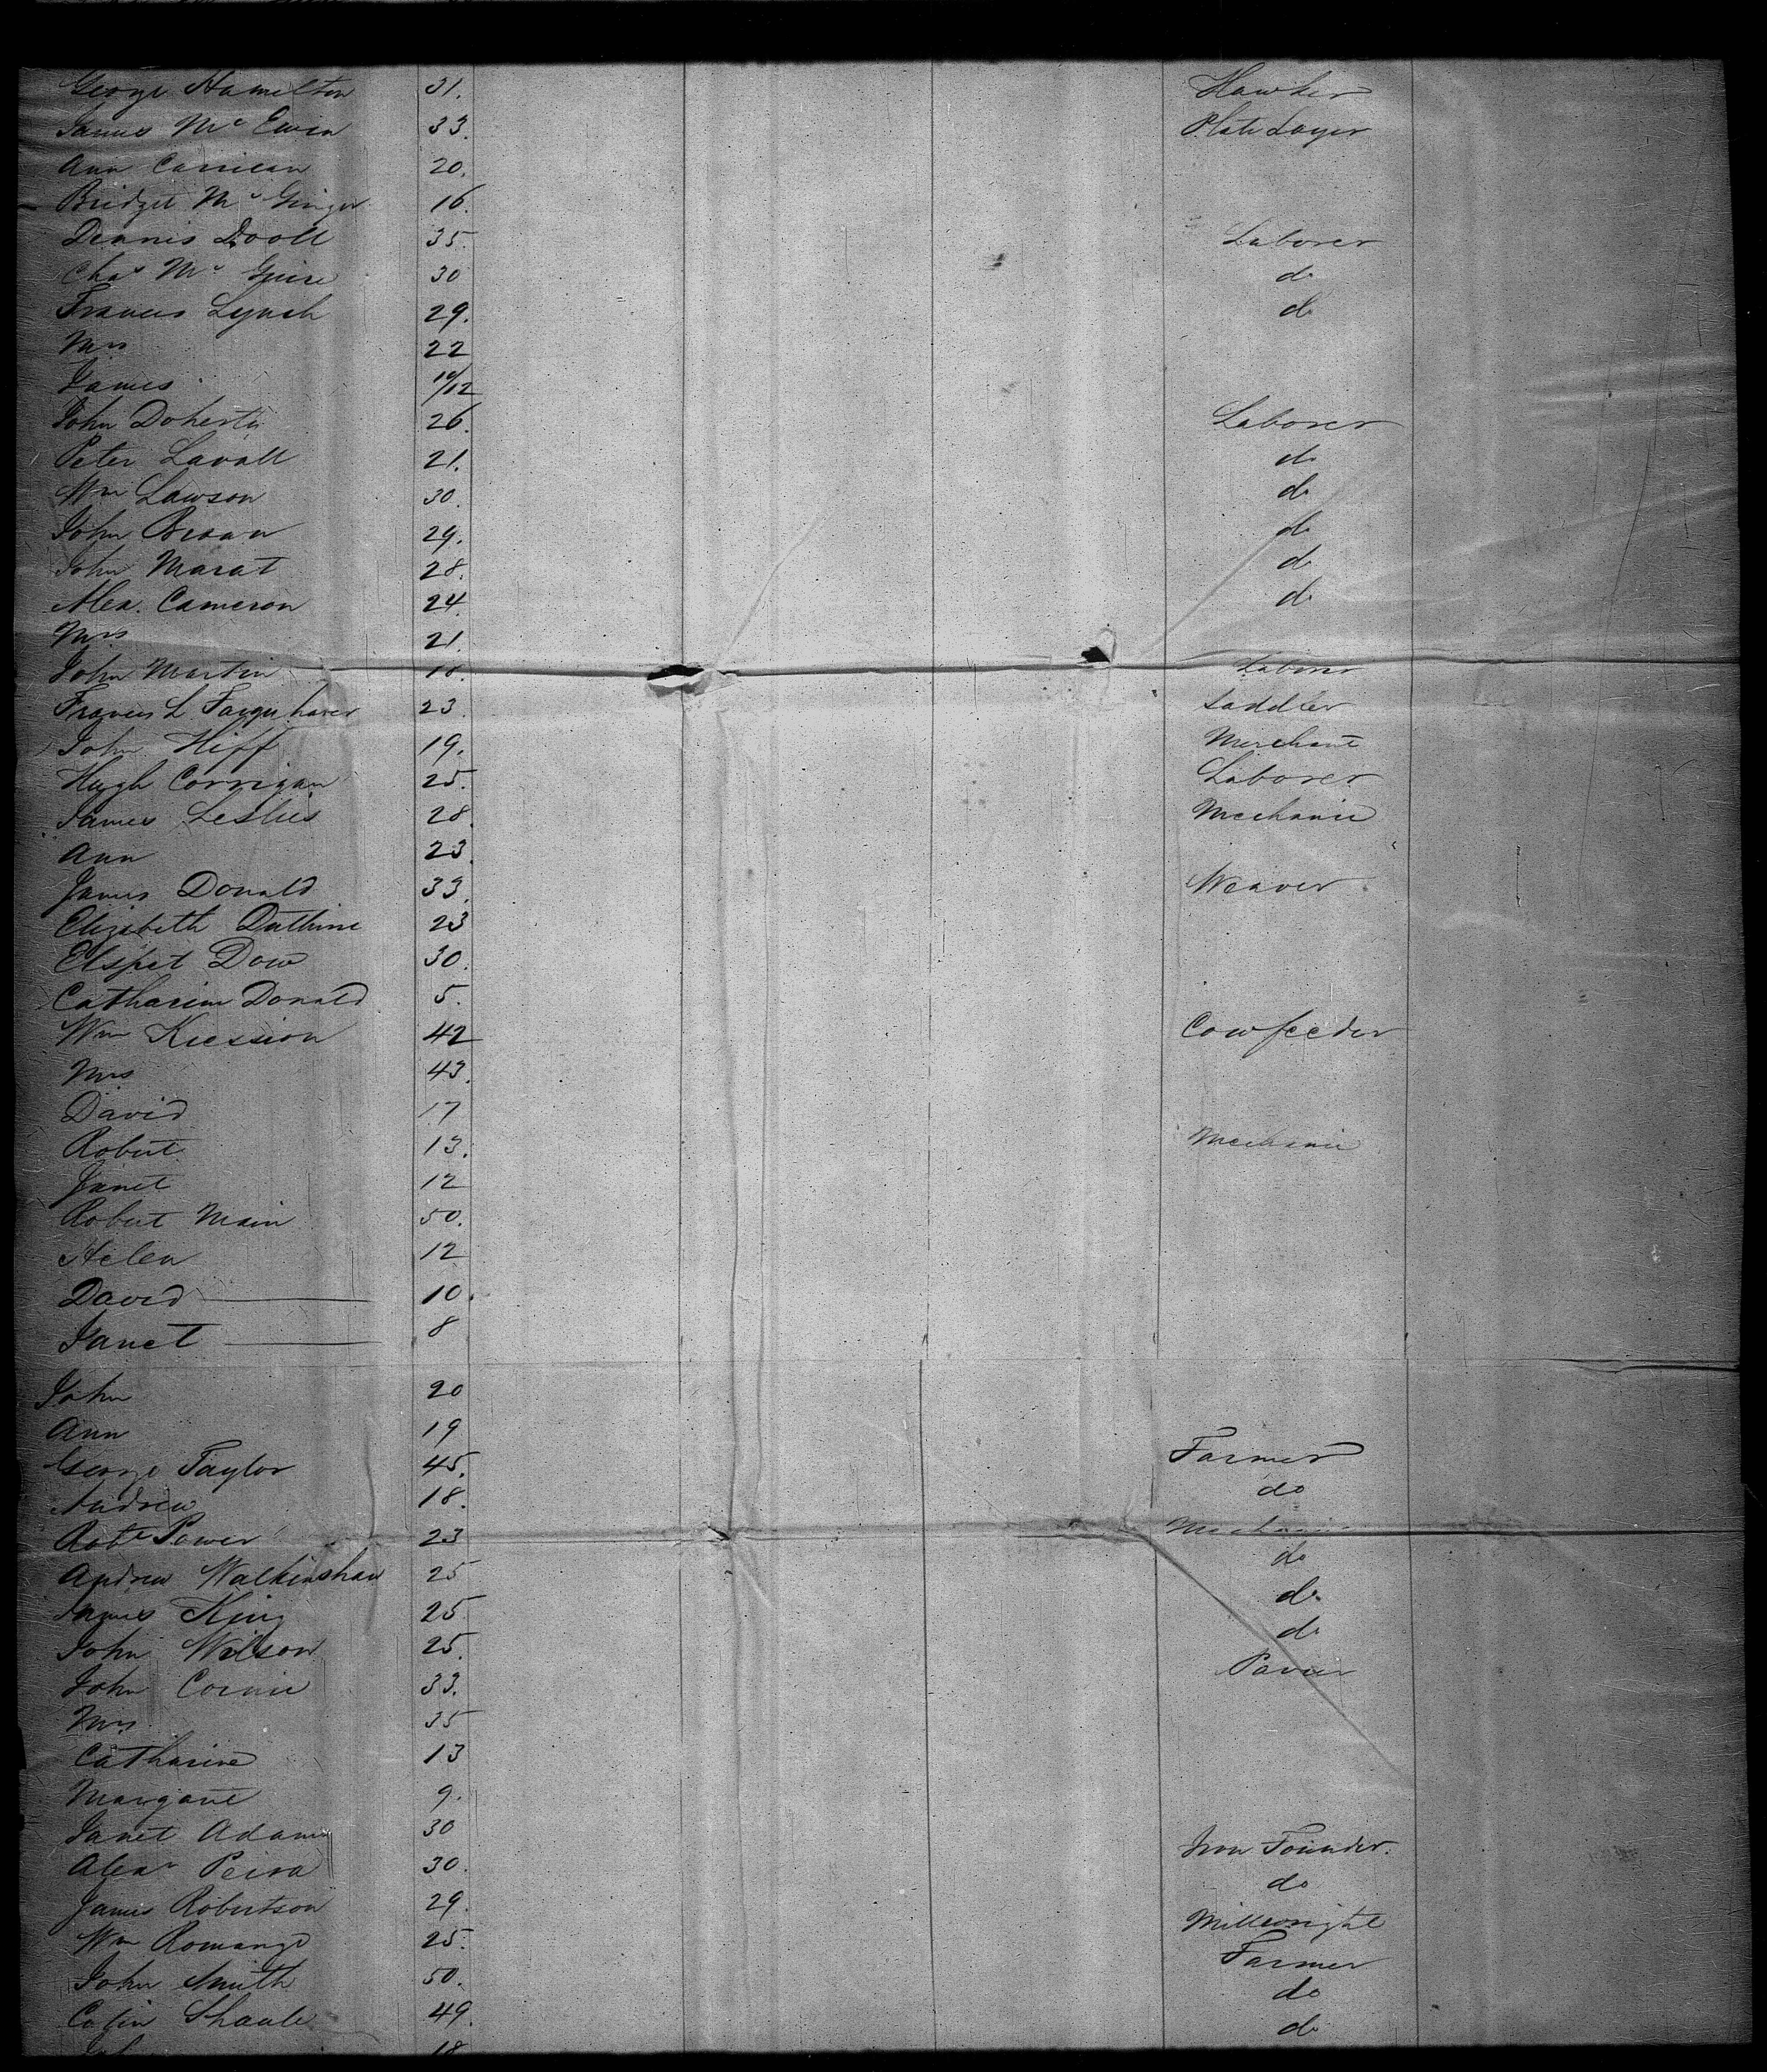 George Hamilton 31. Hawker
James Mc Ewin 33. Plate Layer
Ann Carrican 20.
Bridget Mc 16.
Dennis Dooll 35. Laborer
Chas Mc Guire 30 do
Francis Lynch 29. do
Mrs 22
James 10/12
John Doherty 26. Laborer
Peter Lavall 21. do
Wm Lawson 30. do
John Brown 29. do
John Marat 28. do
Alex. Cameron 24. do
Mrs 21.
John Martin 18. Laborer
Francis L Farquharer 23. Saddler
John Hiff 19. Merchant
Hugh Corrigan 25. Laborer
James Leslies 28. Mechanic
Ann 23.
James Donald 33. Weaver
Elizabeth 23
Elspet Dow 30.
Catharine Donald 5.
Wm 42 Cowfeeder
Mrs 43.
David 17
Robert 13. Mechanic
Janet 12
Robert Main 50.
Helen 12
David 10.
Janet 8
John 20
Ann 19
George Taylor 45. Farmer
Andrew 18. do
Robt Power 23 Mechanic
Andrew Walkinshaw 25 do
James King 25 do
John Wilson 25. do
John Cornie 33. Pavier
Mrs 35
Catharine 13
Margaret 9.
Janet Adams 30
Alexr 30. Iron Founder.
James Robertson 29. do
Wm Romange 25. Millwright
John Smith 50. Farmer
Colin 49. do
18 do